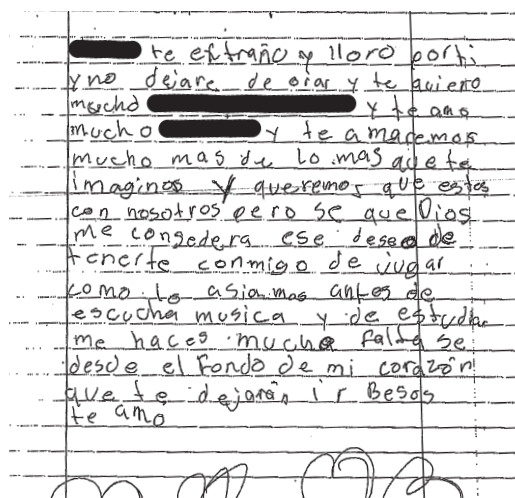 te extraño y lloro por ti
y no dejare de orar y te quiero
mucho y te amo
mucho y te amaremos
mucho mas de lo mas que te
imaginas y queremos que estes
con nosotros pero se que Dios
me consedera ese deseo de
tenerte conmigo de jugar
como lo asiamos antes de
escucha musica y de estudiar
me haces mucha falta se
desde el fondo de mi corazón
que te dejarán ir Besos
te amo